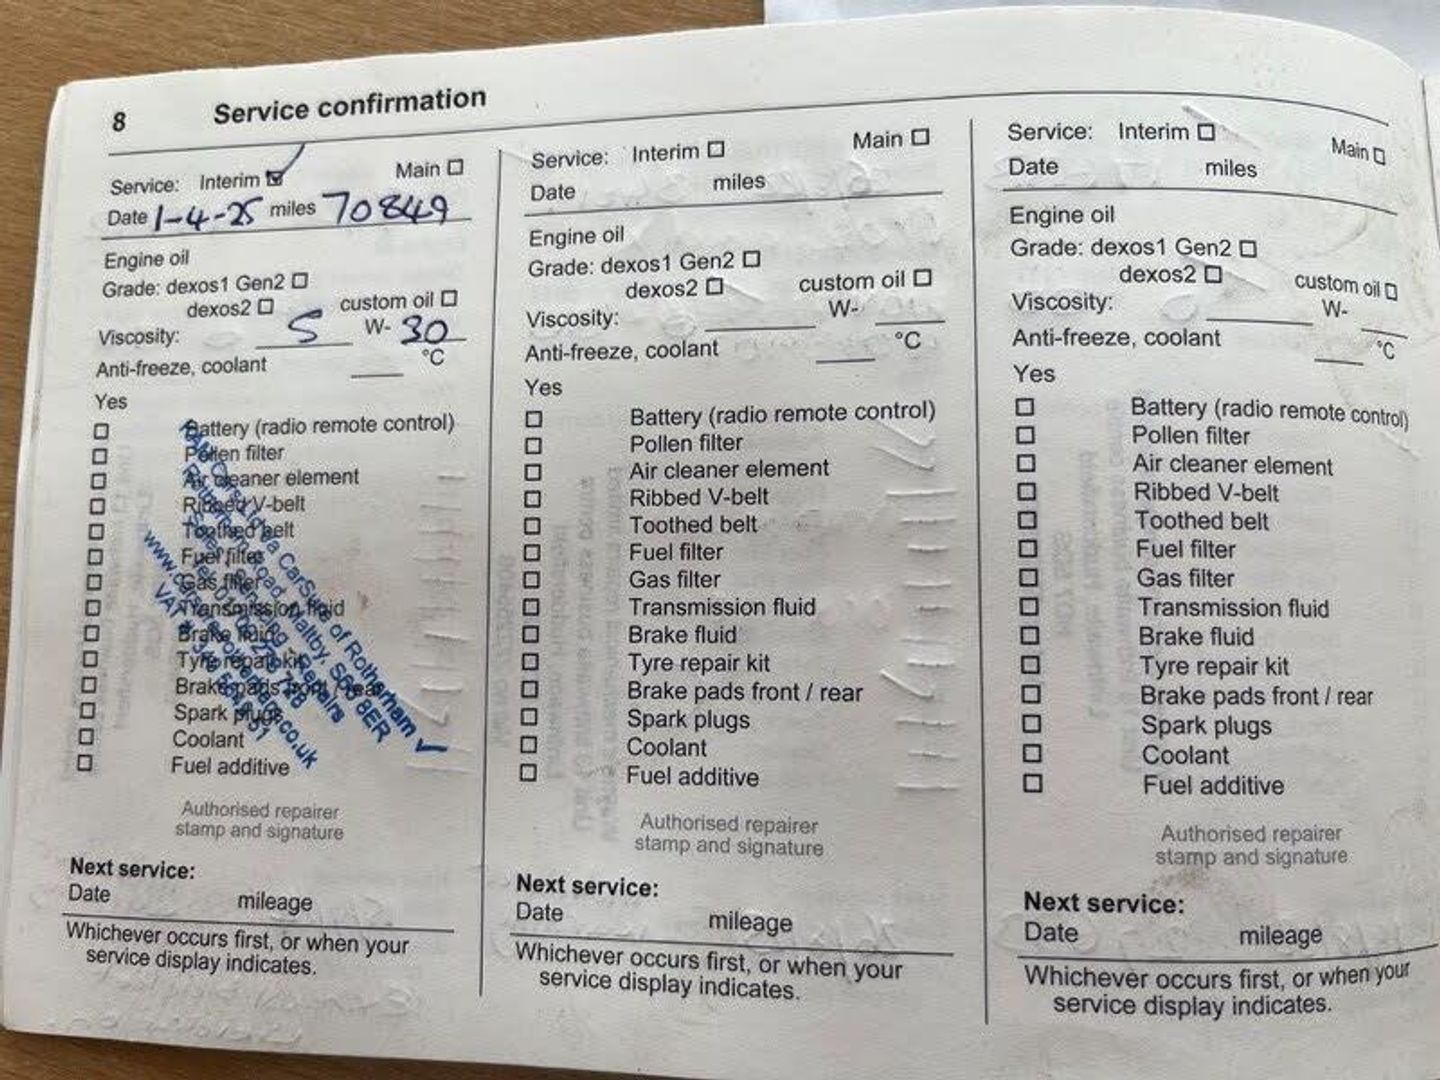 8 Service confirmation
Service: Interim Main
Date 1-4-25 miles 70849
Engine oil
Grade: dexos1 Gen2
dexos2 custom oil
Viscosity: 5 W- 30
Anti-freeze, coolant °C
Yes
Battery (radio remote control)
Pollen filter
Air cleaner element
Ribbed V-belt
Toothed belt
Fuel filter
Gas filter
Transmission fluid
Brake fluid
Tyre repair kit
Brake pads front / rear
Spark plugs
Coolant
Fuel additive
CarSure of Rotherham
Maltby, S66 8ER
Servicing Repairs
Authorised repairer
stamp and signature
Next service:
Date mileage
Whichever occurs first, or when your
service display indicates.
Service: Interim Main
Date miles
Engine oil
Grade: dexos1 Gen2
dexos2 custom oil
Viscosity: W-
Anti-freeze, coolant °C
Yes
Battery (radio remote control)
Pollen filter
Air cleaner element
Ribbed V-belt
Toothed belt
Fuel filter
Gas filter
Transmission fluid
Brake fluid
Tyre repair kit
Brake pads front / rear
Spark plugs
Coolant
Fuel additive
Authorised repairer
stamp and signature
Next service:
Date mileage
Whichever occurs first, or when your
service display indicates.
Service: Interim Main
Date miles
Engine oil
Grade: dexos1 Gen2
dexos2 custom oil
Viscosity: W-
Anti-freeze, coolant °C
Yes
Battery (radio remote control)
Pollen filter
Air cleaner element
Ribbed V-belt
Toothed belt
Fuel filter
Gas filter
Transmission fluid
Brake fluid
Tyre repair kit
Brake pads front / rear
Spark plugs
Coolant
Fuel additive
Authorised repairer
stamp and signature
Next service:
Date mileage
Whichever occurs first, or when your
service display indicates.